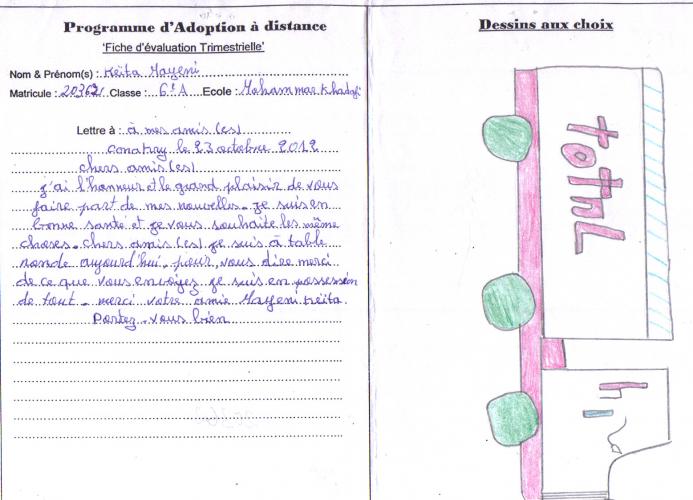 Programme d'Adoption à distance
'Fiche d'évaluation Trimestrielle'
Nom & Prénom(s) : Keïta Mayeni
Matricule : 20362 Classe : 6e A Ecole : Mohammar Khadafi
Lettre à : à mes amis (es)
Conakry le 23 octobre 2012
chers amis (es)
j'ai l'honneur et le grand plaisir de vous
faire part de mes nouvelles. je suis en
bonne santé et je vous souhaite les même
choses. chers amis (es) je suis à table
ronde aujourd'hui pour vous dire merci
de ce que vous envoyez je suis en possession
de tout. merci votre amie Mayeni Keïta.
Portez-vous bien
Dessins aux choix
totaL